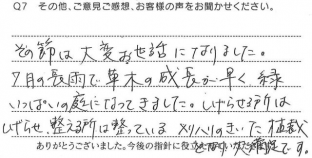 Q7 その他、ご意見ご感想、お客様の声をお聞かせください。
その節は大変お世話になりました。
7月の長雨で草木の成長が早く 緑
いっぱいの庭になってきました。しげらせる所は
しげらせ、整える所は整っている メリハリのきいた 植栽
となり 大満足です。
ありがとうございました。今後の指針に役立